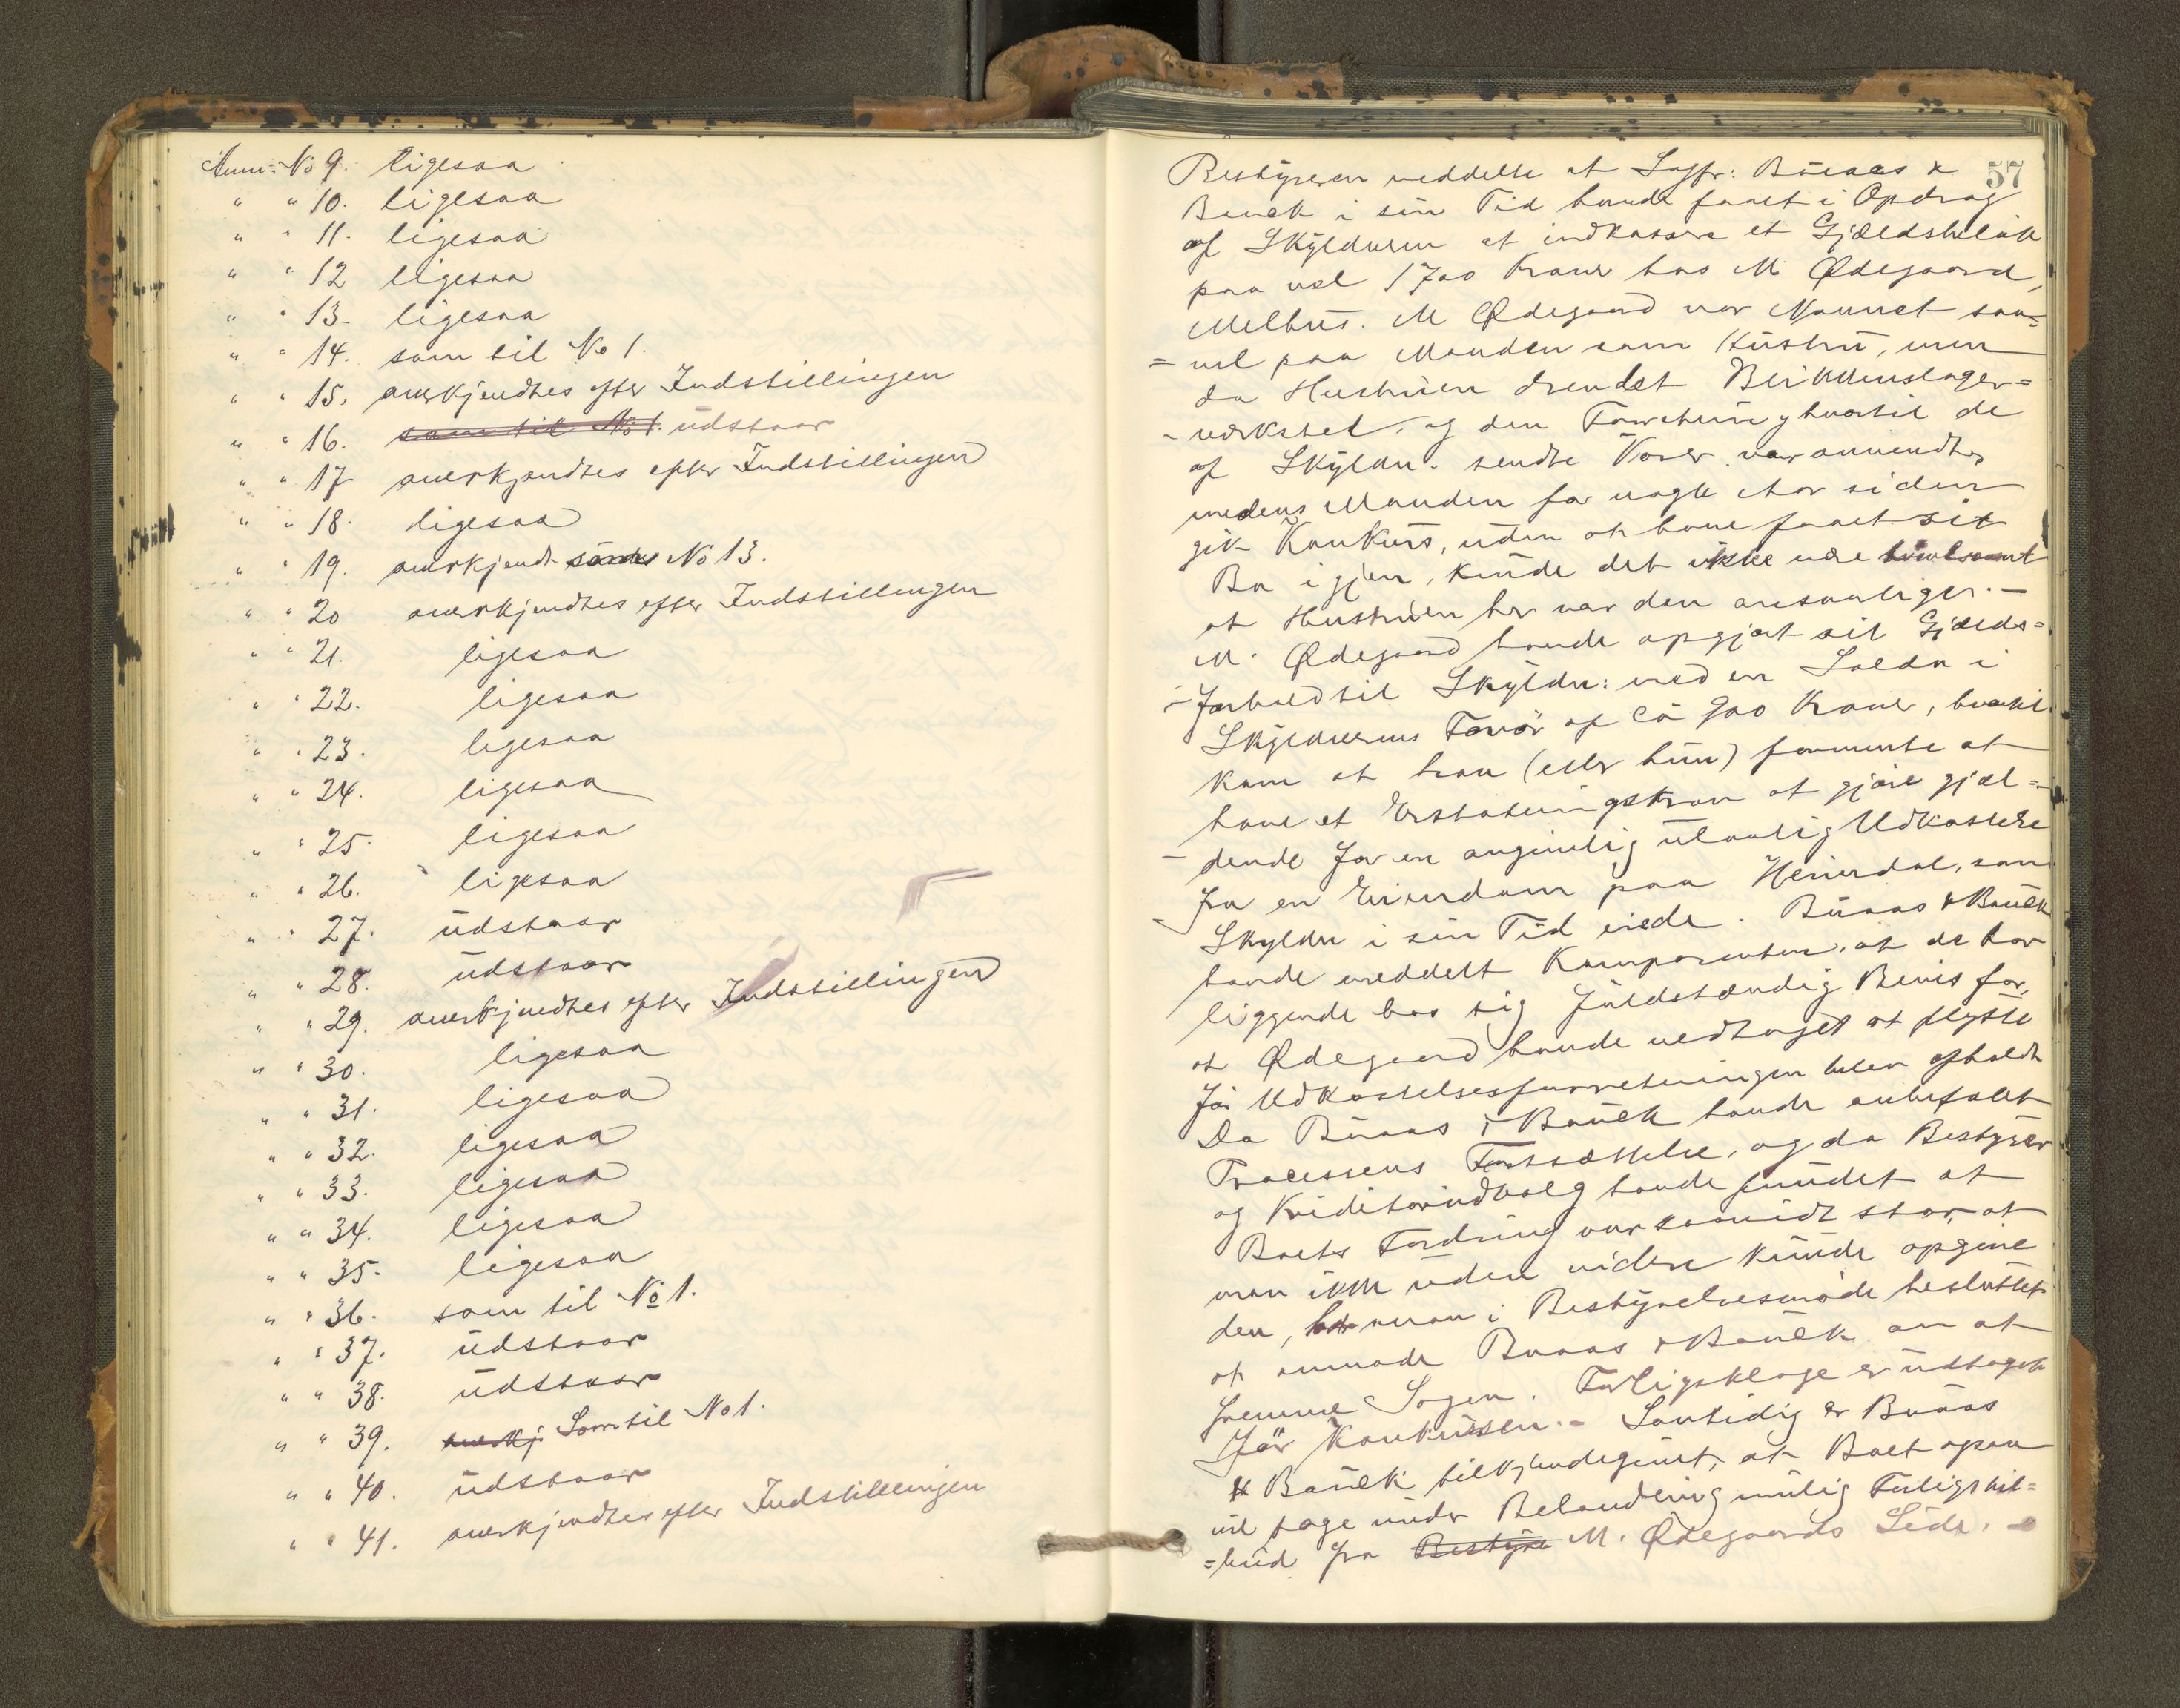 Anm: No 9. ligesaa
" " 10. ligesaa
" " 11. ligesaa
" " 12 ligesaa
" " 13. ligesaa
" " 14. som til No 1.
" " 15. anerkjendtes efter Indstillingen
" " 16. som til No 1. udstaar
" " 17 anerkjendtes efter Indstillingen
" " 18. ligesaa
" " 19. anerkjendt No 13.
" " 20 anerkjendtes efter Indstillingen
" " 21. ligesaa
" " 22. ligesaa
" " 23. ligesaa
" " 24. ligesaa
" " 25. ligesaa
" " 26. ligesaa
" " 27. udstaar
" " 28. udstaar
" " 29. anerkjendtes efter Indstillingen
" " 30. ligesaa
" " 31. ligesaa
" " 32. ligesaa
" " 33. ligesaa
" " 34. ligesaa
" " 35. ligesaa
" " 36. som til No 1.
" " 37. udstaar
" " 38. udstaar
" " 39. anerkj Som til No 1.
" " 40. udstaar
" " 41. anerkjendtes efter Indstillingen
57
Bestyreren meddelte at Sagfr: Buaas &
Bauck i sin Tid havde faaet i Opdrag
af Skyldneren at indkassere et Gjældsbeløb
paa vel 1700 Kroner hos M Ødegaard,
Melhus. M Ødegaard var Navnet saa=
=vel paa Manden som Hustru, men
da Hustruen drev det Blikkenslager=
=værksted og den Forretning hvortil de
af Skyldn. sendte Varer var anvendt,
medens Manden for nogle Aar siden
gik Konkurs, uden at have faaet sit
Bo igjen, kunde det ikke være tvivlsomt
at Hustruen her var den ansvarlige. -
M. Ødegaard havde opgjort sit Gjælds=
=forhold til Skyldn: med en Saldo i
Skyldnerens Favør af Ca 900 Kroner, hvortil
kom at han (eller hun) formente at
have et Erstatningskrav at gjøre gjæl=
=dende for en angivelig ulovlig Udkastelse
fra en Eiendom paa Heimdal, som
Skyldn i sin Tid eiede. Buaas & Bauck
havde meddelt Komparenten, at de har
liggende hos sig fuldstændig Bevis for,
at Ødegaard havde vedtaget at flytte
før Udkastelsesforretningen blev afholdt
Da Buaas & Bauck havde anbefalet
Processens Fortsættelse, og da Bestyrer
og Kreditorudvalg havde fundet at
Boets Fordring var saavidt stor, at
man ikke uden videre kunde opgive
den, har man i Bestyrelsesmøde besluttet
at anmode Buaas & Bauck om at
fremme Sagen. Forligsklage er udtaget
før Konkursen. - Samtidig er Buaas
& Bauck tilkjendegivet, at Boet ogsaa
vil tage under Behandling mulig Forligstil=
=bud fra Bestyre M. Ødegaards Side. -